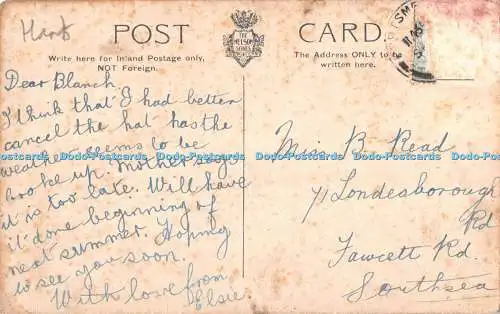 Hants
POST CARD.
THE
NELSON
SERIES
Write here for Inland Postage only,
NOT Foreign.
The Address ONLY to be
written here.
Dear Blanch.
I think that I had better
cancel the hat has the
weather seems to be
broke up. Mother says
it is too late. Will have
it done beginning of
next summer. Hoping
to see you soon.
With love from
Elsie.
Miss B. Read
71 Londesborough
Rd
Fawcett Rd.
Southsea
Data-Postcards Data-Postcards Data-Postcards Data-Postcards Data-Postcards